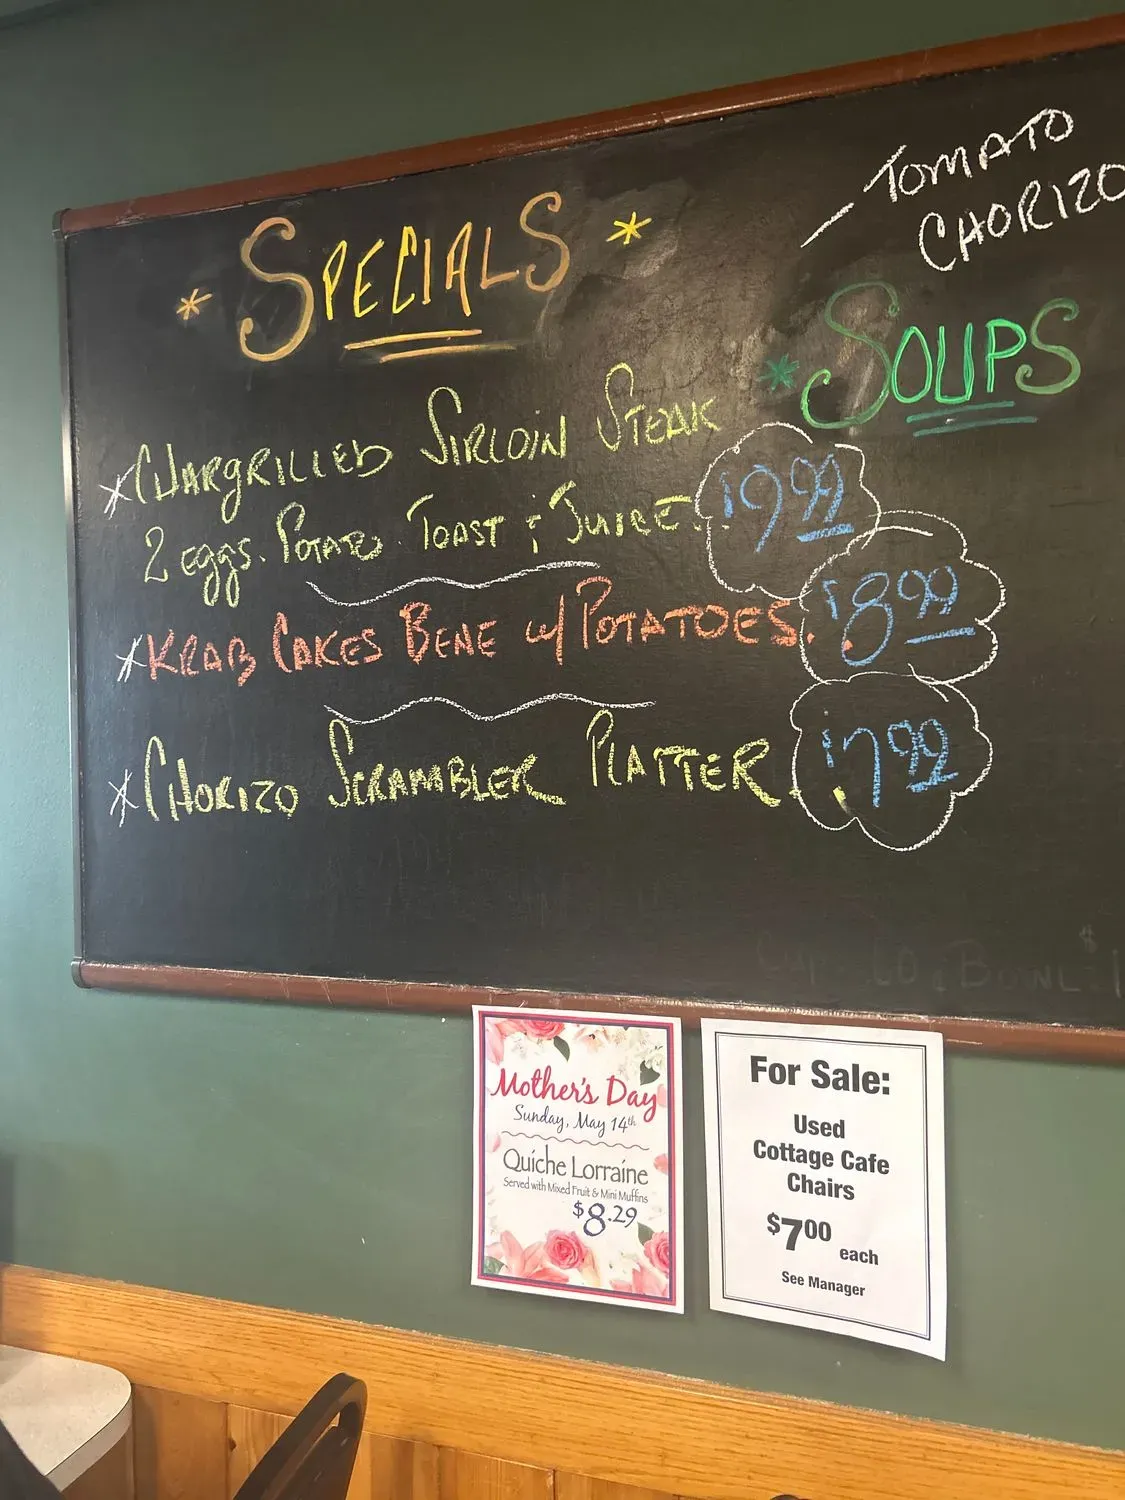 * SPECIALS *
* CHARGRILLED SIRLOIN STEAK
2 eggs. POTATO. TOAST & JUICE. $9.99
* KRAB CAKES BENE w/ POTATOES. $8.99
* CHORIZO SCRAMBLER PLATTER. $7.99
- TOMATO
CHORIZO
* SOUPS
BOWL
Mother's Day
Sunday, May 14th
Quiche Lorraine
Served with Mixed Fruit & Mini Muffins
$8.29
For Sale:
Used
Cottage Cafe
Chairs
$7.00 each
See Manager